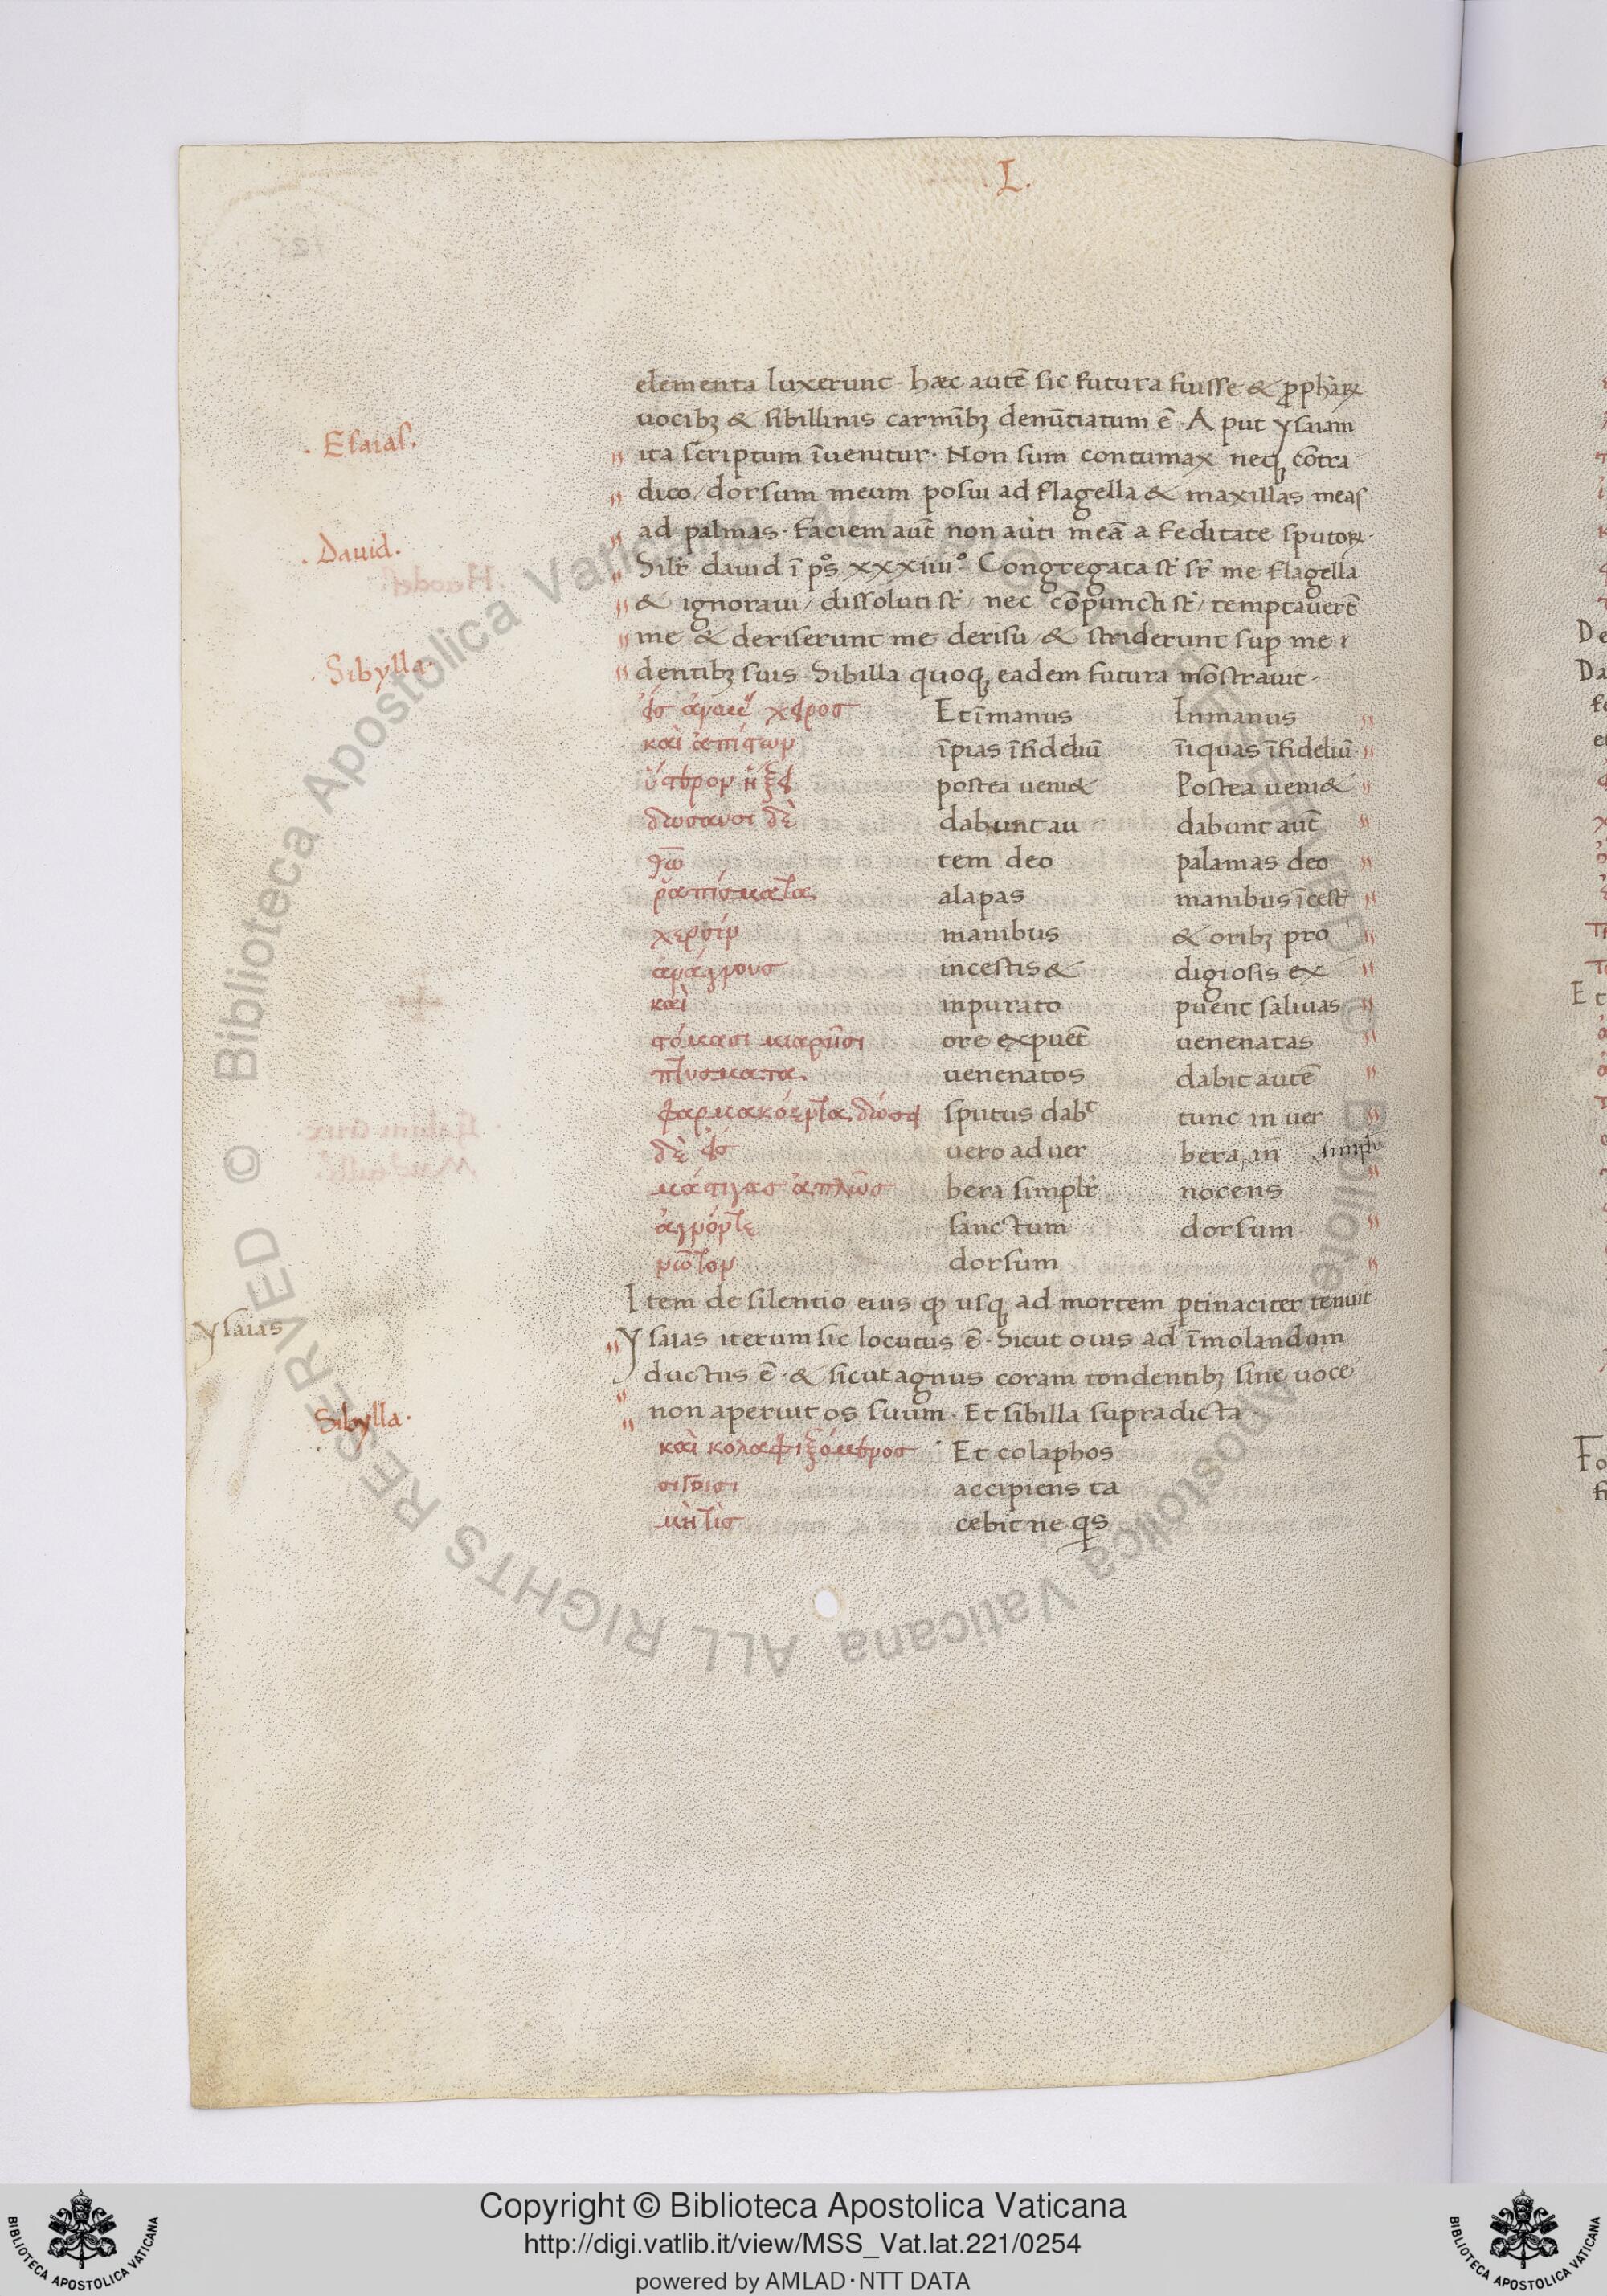 .L.
elementa luxerunt. hæc autē sic futura fuisse & ꝓphaꝝ
.Esaias.
uocibꝫ & sibillinis carmībꝫ denūtiatum ē. Aput ysaiam
ita scriptum īuenitur. Non sum contumax neqꝫ cōtra
dico/ dorsum meum posui ad flagella & maxillas meas
.Dauid.
ad palmas. faciem aut̄ non au̇ti meā a feditate sputoꝝ.
Silr̄ dauid ī ps̊ xxxiiii°. Congregata st̄ sr̄ me flagella
& ignoraui/ dissoluti st̄/ nec cōpuncti st̄/ temptauer̄t
.Sibylla.
me & deriserunt me derisu/ & striderunt suꝑ me
dentibꝫ suis. Sibilla quoqꝫ eadem futura mōstrauit.
χεροσ Et īmanus Inmanus
καὶ ἀπίστων īpias īfideliū īiquas īfideliū.
ὕστερον ἥξει postea ueni& Postea ueni&
δώσουσι δὲ dabunt au dabunt aut̄
θω̄ tem deo palamas deo
ῥαπίσματα alapas manibus īcest
χερσίν manibus & oribꝫ pro
ἀνάγνουσ incestis & digiosis ex
καὶ inpurato puent saliuas
στόμασι μιαρῆσι ore expuet̄ uenenatas
πτυσματα. uenenatos dabit autē
φαρμακόεντα. δώσει sputus dabᵗ tunc in uer
δὲ εἰσ uero ad uer bera in simplr
μάστιγασ ἁπλῶσ bera simplr̄ nocens
ἁγνόντε sanctum dorsum
νῶτον dorsum
Item de silentio eius qͦ usqꝫ ad mortem ꝑtinaciter tenuit
ysaias
Ysaias iterum sic locutus ē. Sicut ouis ad īmolandum
ductus ē. & sicut agnus coram tondentibꝫ sine uoce
Sibylla.
non aperuit os suum. Et sibilla supradicta
καὶ κολαφιζόμενοσ Et colaphos
σιγήσει accipiens ta
μὴ τὶσ cebit ne qͥs
Copyright © Biblioteca Apostolica Vaticana
http://digi.vatlib.it/view/MSS_Vat.lat.221/0254
powered by AMLAD·NTT DATA
BIBLIOTECA APOSTOLICA VATICANA
BIBLIOTECA APOSTOLICA VATICANA